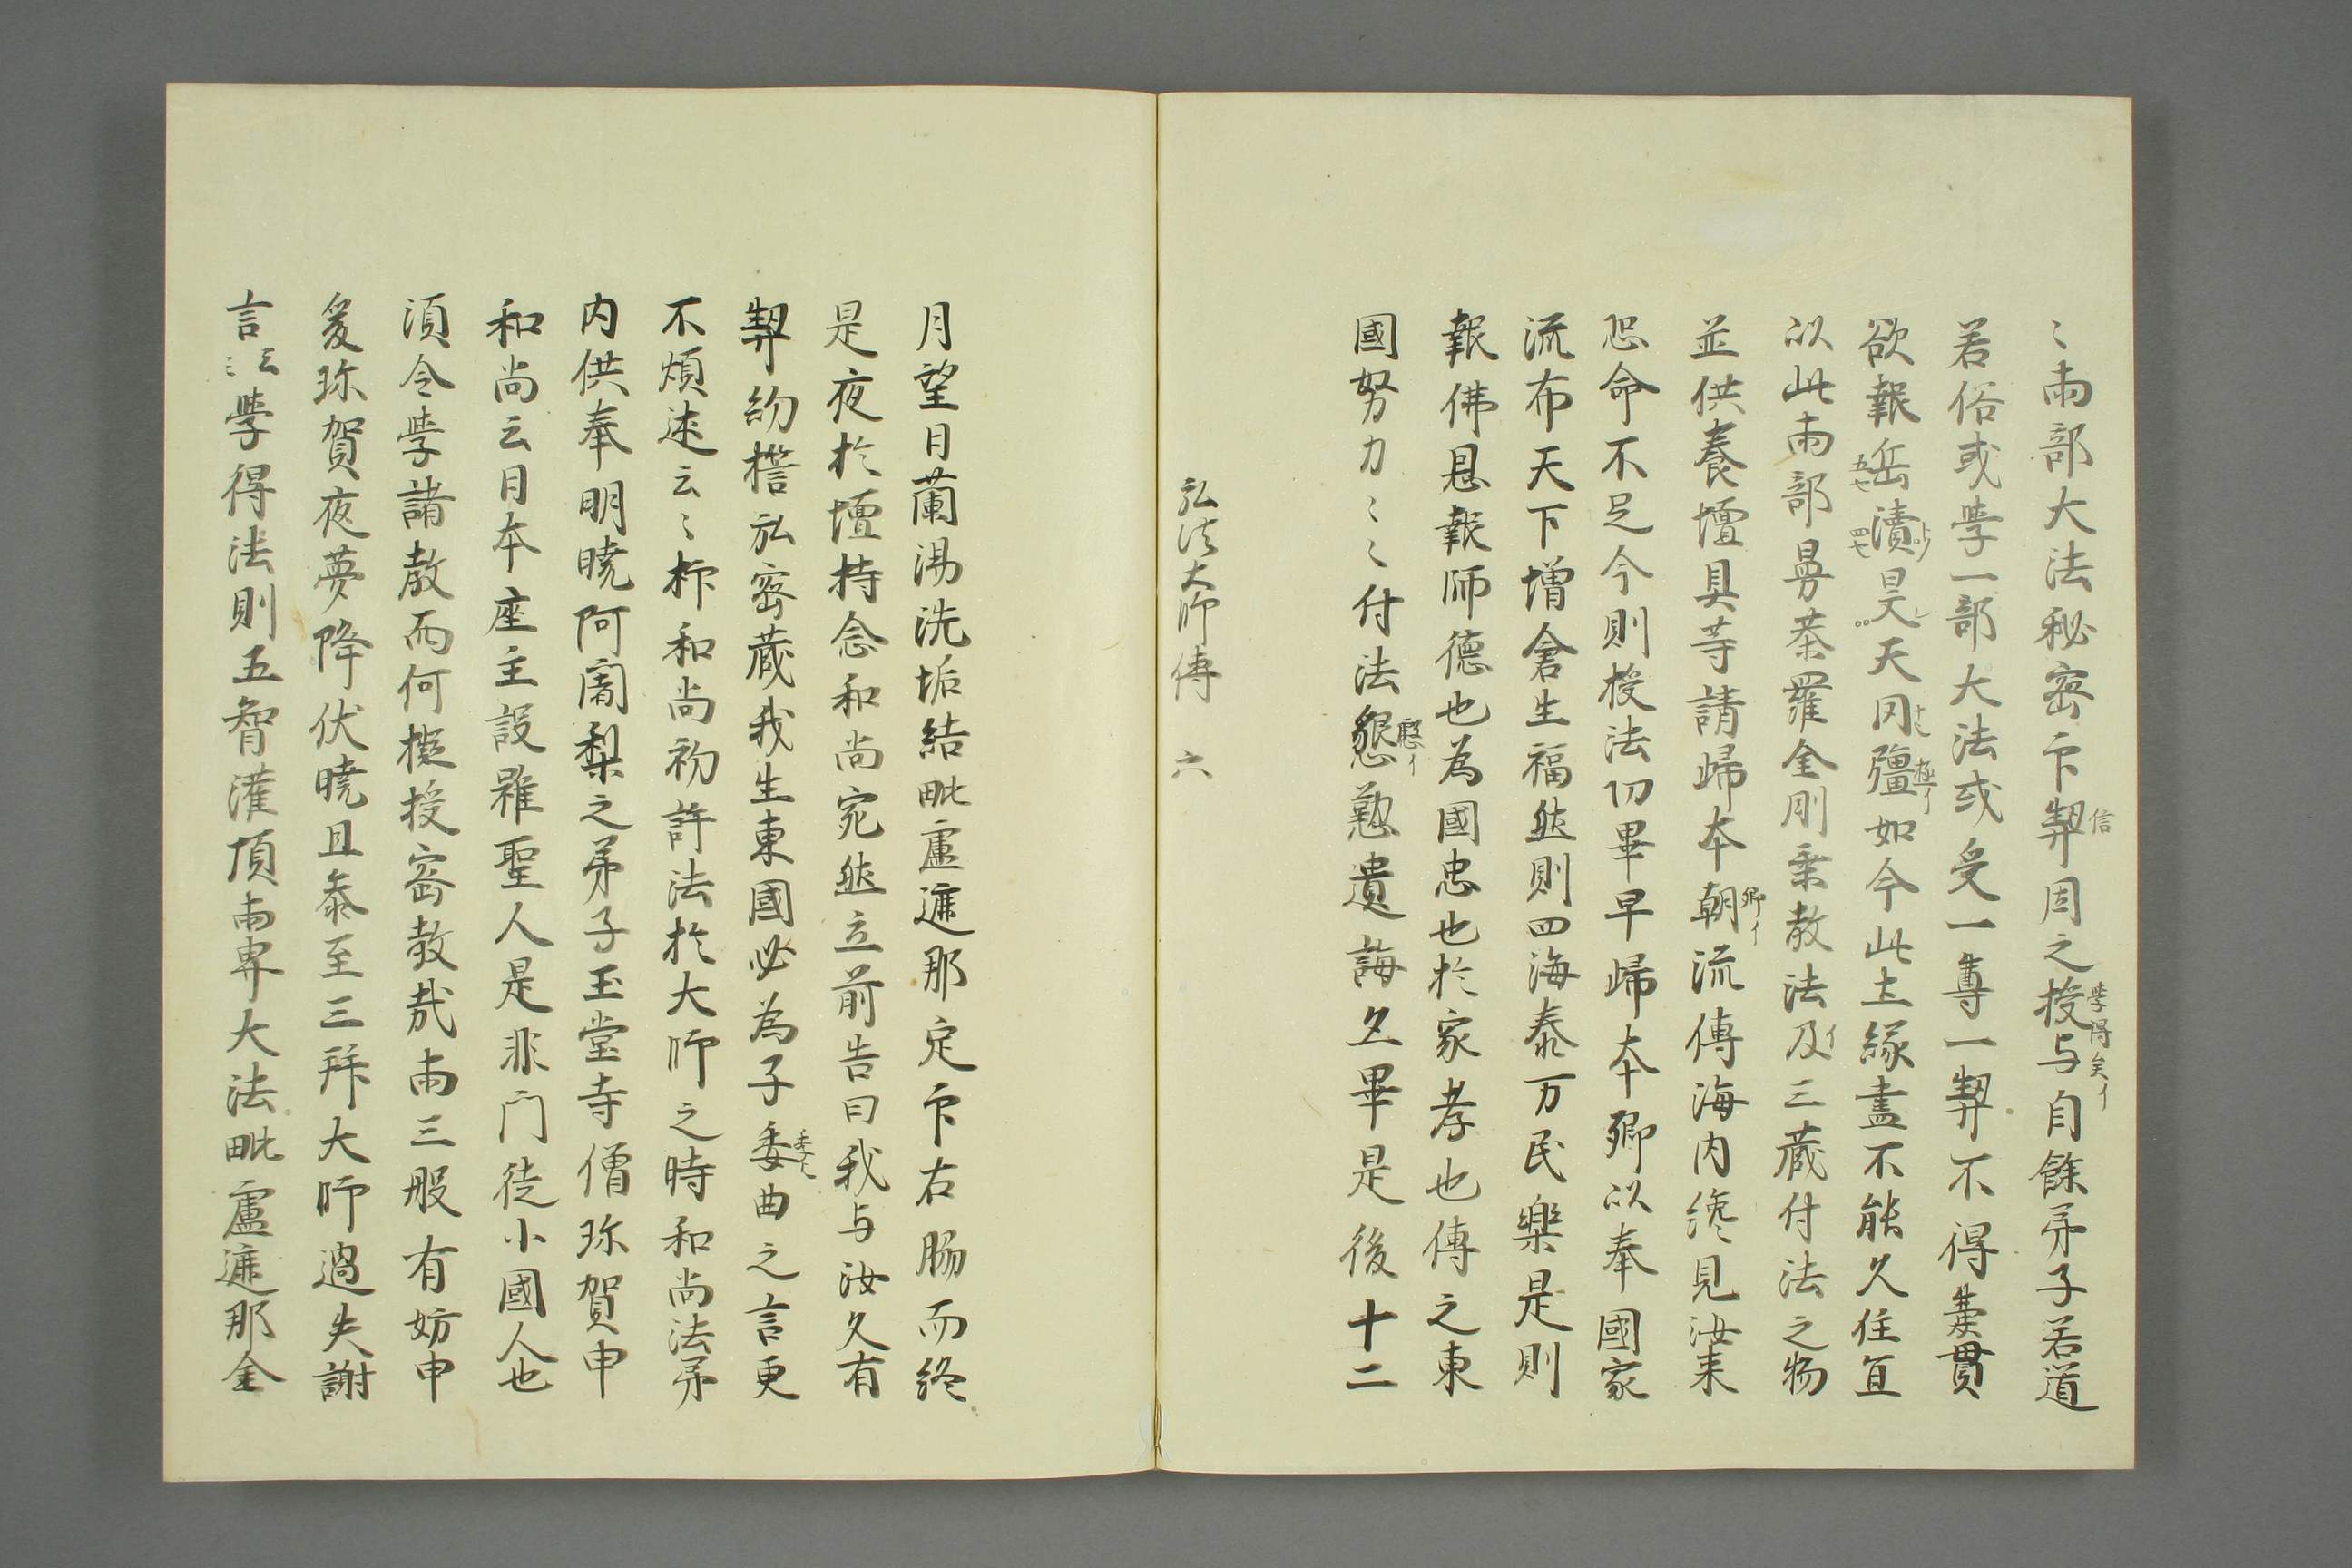 〻兩部大法秘密印契因之授与自餘弟子若道
若俗或學一部大法或受一尊一契不得兼貫
欲報岳瀆昊天罔彊如今此土緣盡不能久住宜
以此兩部曼荼羅金剛乗教法及三藏付法之物
並供養壇具等請歸本朝流傳海内纔見汝来
恐命不足今則授法切畢早歸本鄉以奉國家
流布天下增倉生福然則四海泰万民樂是則
報佛恩報師德也為國忠也於家孝也傳之東
國努力〻〻付法慇懃遺誨已畢是後十二
弘法大師傳 六
月望日蘭湯洗垢結毗盧遮那定印右脇而終
是夜於壇持念和尚宛然立前告曰我与汝久有
契約誓弘密藏我生東國必為子委曲之言更
不煩述云〻抑和尚初許法於大師之時和尚法弟
内供奉明曉阿闍梨之弟子玉堂寺僧珎賀申
和尚云日本座主設雖聖人是非門徒小國人也
須令學諸教而何擬授密教哉兩三般有妨申
爰珎賀夜夢降伏曉旦参至三拜大師過失謝
言云〻學得法則五智灌頂兩專大法毗盧遮那金